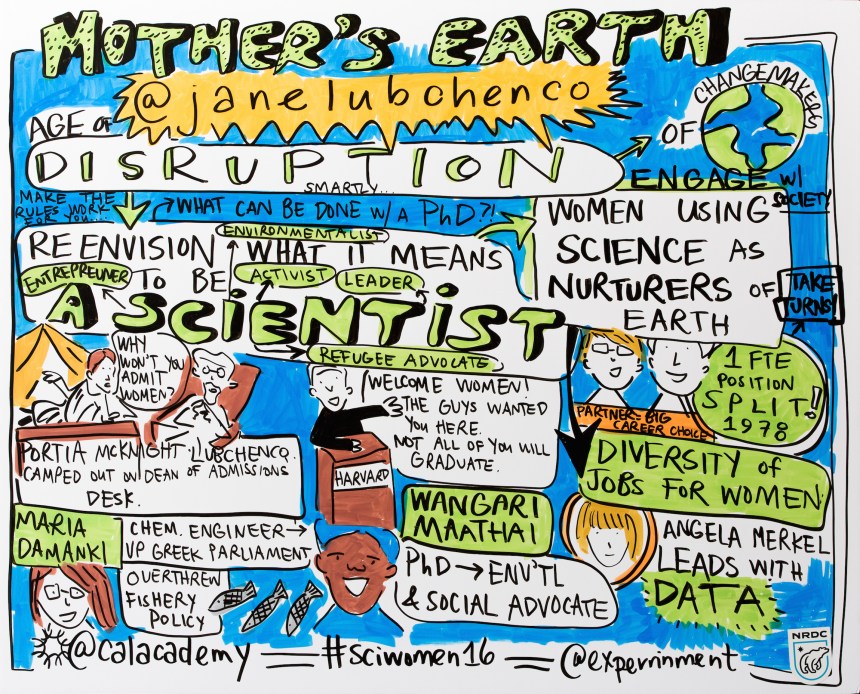 MOTHER'S EARTH
@janelubchenco
AGE OF
DISRUPTION
OF
CHANGEMAKERS
ENGAGE W/
SOCIETY
MAKE THE
RULES WORK
FOR YOU...
SMARTLY...
WHAT CAN BE DONE W/ A PhD?!
ENVIRONMENTALIST
REENVISION WHAT IT MEANS
ENTREPREUNER
TO BE
ACTIVIST
LEADER
A SCIENTIST
REFUGEE ADVOCATE
WOMEN USING
SCIENCE AS
NURTURERS OF
EARTH
TAKE
TURNS!
WHY
WON'T YOU
ADMIT
WOMEN?
PORTIA McKNIGHT LUBCHENCO.
CAMPED OUT ON DEAN OF ADMISSIONS
DESK.
WELCOME WOMEN!
THE GUYS WANTED
YOU HERE.
NOT ALL OF YOU WILL
GRADUATE.
HARVARD
1 FTE
POSITION
SPLIT!
1978
PARTNER = BIG
CAREER CHOICE
DIVERSITY of
JOBS FOR WOMEN
MARIA
DAMANKI
CHEM. ENGINEER →
VP GREEK PARLIAMENT
OVERTHREW
FISHERY
POLICY
WANGARI
MAATHAI
PhD → ENV'TL
& SOCIAL ADVOCATE
ANGELA MERKEL
LEADS WITH
DATA
@calacademy = #sciwomen16 = @experrinment
NRDC